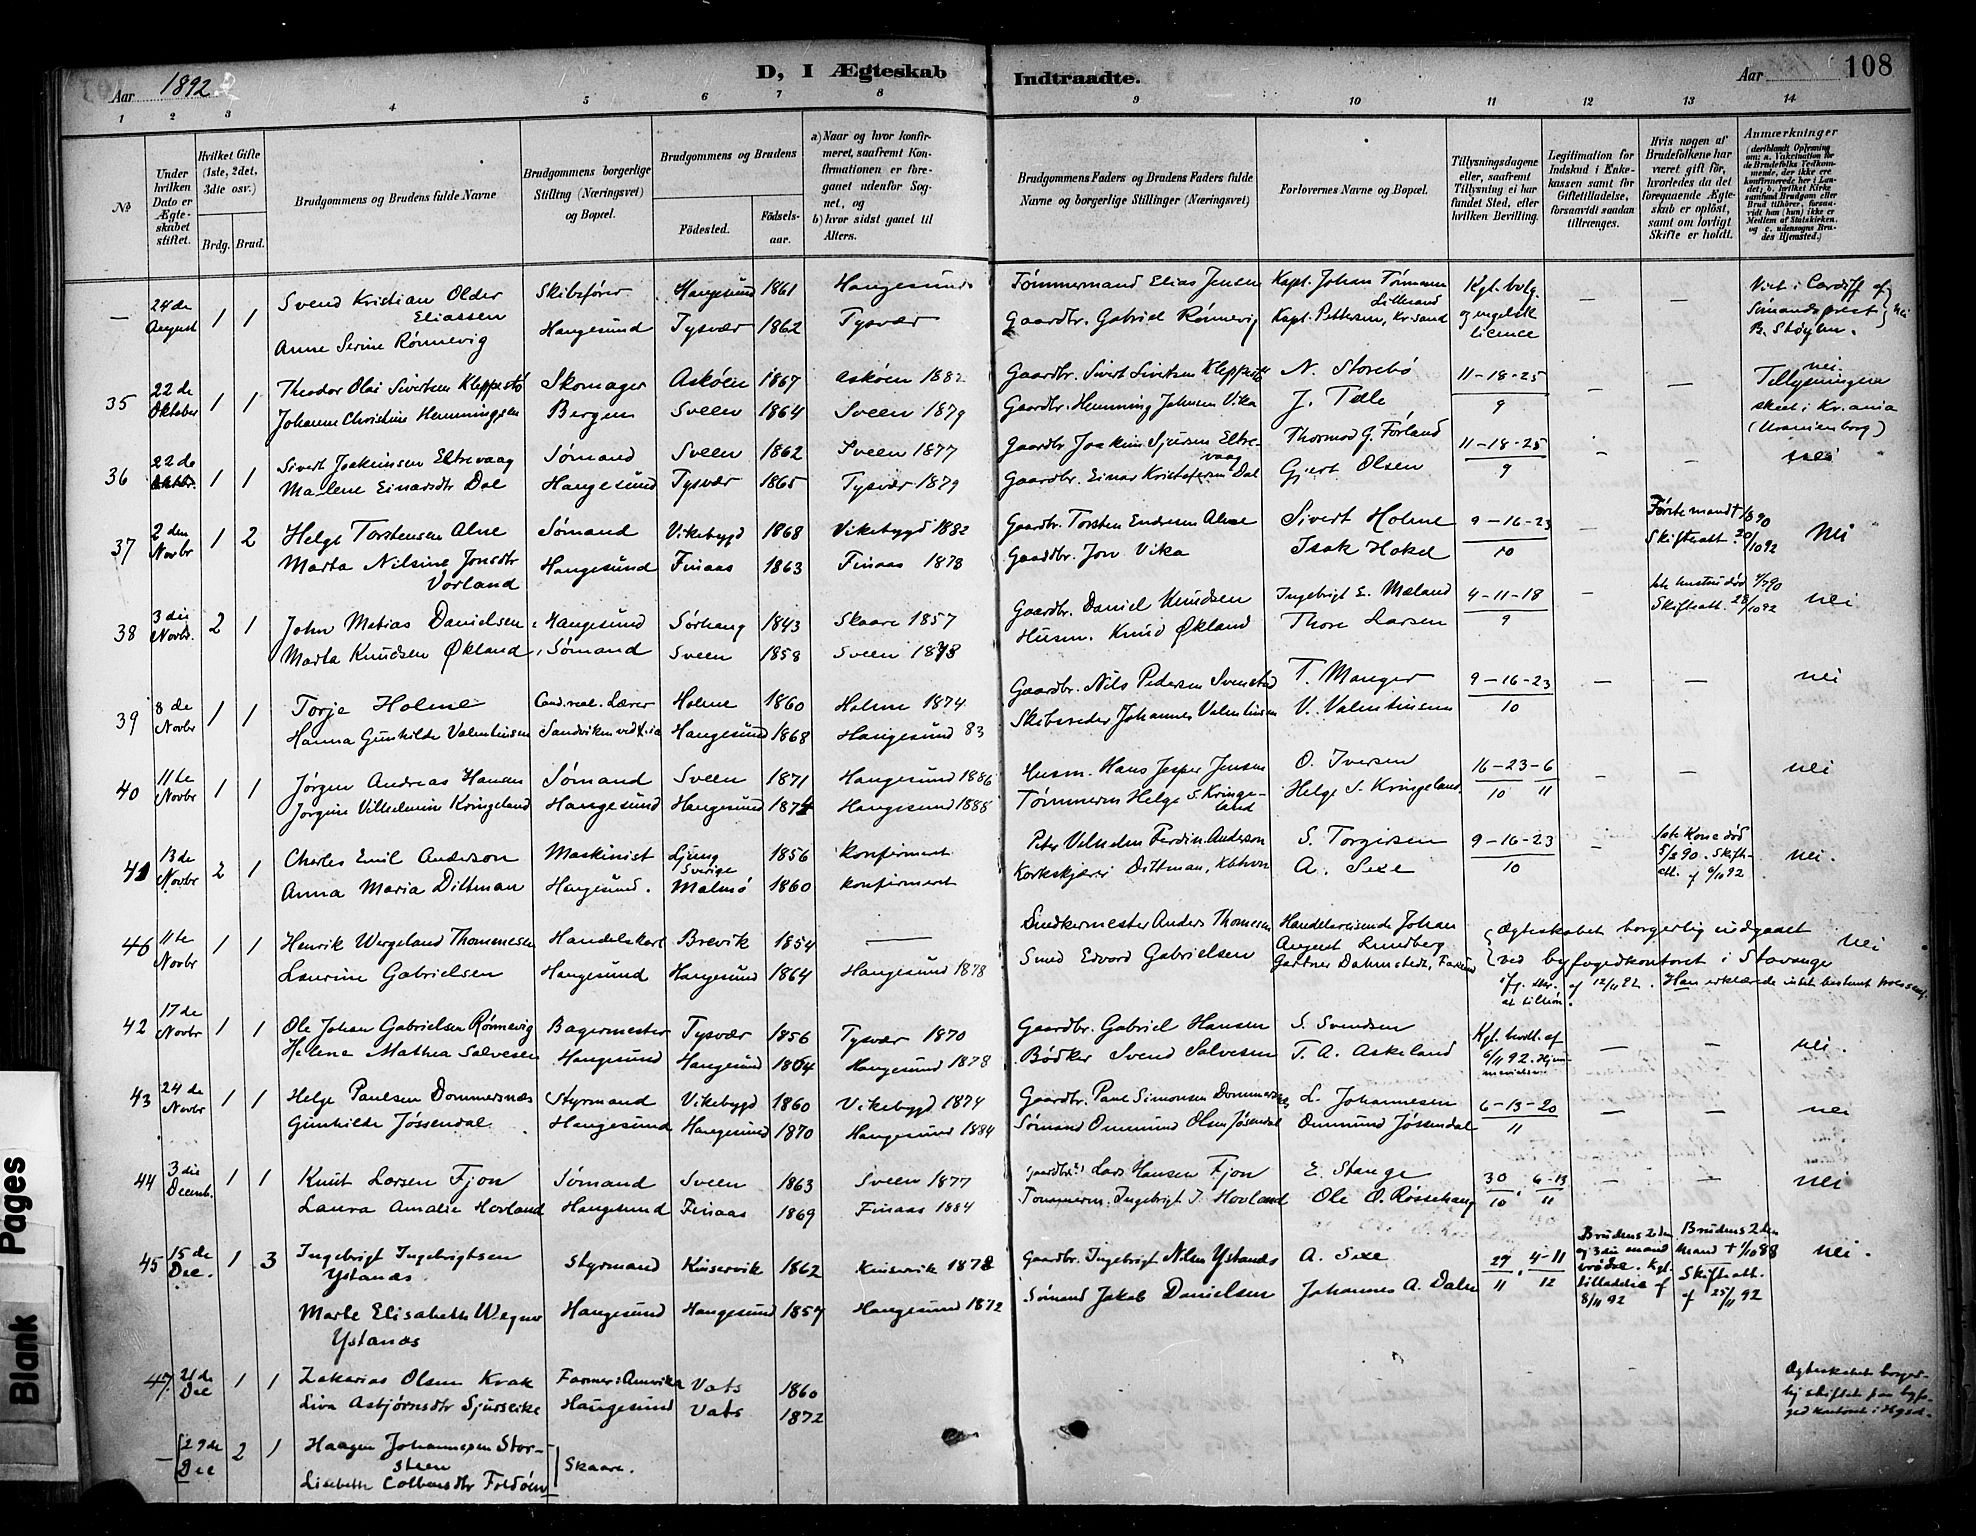 Aar 1892
D, I Ægteskab Indtraadte.
Aar 108
1 2 3 4 5 6 7 8 9 10 11 12 13 14
No
Under hvilken Dato er Ægteskabet stiftet.
Hvilket Gifte (1ste, 2det, 3die osv.)
Brdg. Brud.
Brudgommens og Brudens fulde Navne
Brudgommens borgerlige Stilling (Næringsvei) og Bopæl.
Brudgommens og Brudens
Fødested.
Fødselsaar.
a) Naar og hvor konfirmeret, saafremt Konfirmationen er foregaaet udenfor Sognet, og
b) hvor sidst gaaet til Alters.
Brudgommens Faders og Brudens Faders fulde Navne og borgerlige Stillinger (Næringsvei)
Forlovernes Navne og Bopæl.
Tillysningsdagene eller, saafremt Tillysning ei har fundet Sted, efter hvilken Bevilling.
Legitimation for Indskud i Enkekassen samt for Giftetilladelse, forsaavidt saadan tiltrænges.
Hvis nogen af Brudefolkene har været gift før, hvorledes da det foregaaende Ægteskab er opløst, samt om lovligt Skifte er holdt.
Anmærkninger
(deriblandt Oplysning om: a. Vaccination for de Brudefolks Vedkommende, der ikke ere konfirmerede her i Landet; b. hvilket Kirkesamfund Brudgom eller Brud tilhører, forsavidt han (hun) ikke er Medlem af Statskirken, og c. udensogns Brudes Hjemsted.)
— 24de August 1 1 Svend Kristian Older Eliassen Skibsfører Haugesund 1861 Haugesund Tømmermand Elias Jensen Kapt. Johan Tørmoen Lillesand Kgl. bvlg. — — Viet i Cardiff af
Anne Serine Rønnevig Haugesund Tysvær 1862 Tysvær Gaardbr. Gabriel Rønnevig Kapt. Pettersen, Kr.sand og engelsk licence Sømandsprest B. Støylen. nei
35 22de Oktober 1 1 Theodor Olai Sivertsen Kleppestø Skomager Askøen 1867 Askøen 1882 Gaardbr. Sivert Sivertsen Kleppestø N. Storebø 11-18-25 — — nei. Tillysningen
Johanne Christine Hemmingsen Bergen Sveen 1864 Sveen 1879 Gaardbr. Hemming Johnsen Vika J. Tele 9 skeet i Kr.ania (Uranienborg)
36 22de Oktbr. 1 1 Sivert Joakimsen Eltrevaag Sømand Sveen 1862 Sveen 1877 Gaardbr Joakim Sjursen Eltrevaag Thormod G. Førland 11-18-25 — — nei
Malene Einarsdtr Dal Haugesund Tysvær 1865 Tysvær 1879 Gaardbr. Einar Kristofersen Dal Gjert Olsen 9
37 2den Novbr 1 2 Helge Torstensen Alne Sømand Vikebygd 1868 Vikebygd 1882 Gaardbr. Torsten Endresen Alne Sivert Holme 9-16-23 — Første mand † 90 nei
Marta Nilsine Jonsdtr Vorland Haugesund Finaas 1863 Finaas 1878 Gaardbr. Jon Vika Isak Hokel 10 Skifteatt. 20/10 92
38 3die Novbr. 2 1 John Matias Danielsen Haugesund Sørhaug 1843 Skaare 1857 Gaardbr. Daniel Knudsen Ingebrigt E. Mæland 4-11-18 — 1ste hustru død 4/7 90 nei
Marta Knudsen Økland Sømand Sveen 1858 Sveen 1873 Husm. Knud Økland Thore Larsen 9 Skifteatt. 28/10 92
39 8de Novbr 1 1 Torje Holme Cand. real. Lærer Holme 1860 Holme 1874 Gaardbr. Nils Pedersen Svenstad T. Manger 9-16-23 — — nei
Hanna Gunhilde Valentinsen Sandviken ved Kr.ia Haugesund 1868 Haugesund 83 Skibsreder Johannes Valentinsen V. Valentinsen 10
40 11te Novbr 1 1 Jørgen Andreas Hansen Sømand Sveen 1871 Haugesund 1886 Husm. Hans Jesper Jensen O. Iversen 16-23-6 — — nei
Jørgine Vilhelmine Kringeland Haugesund Haugesund 1874 Haugesund 1888 Tømmerm Helge S. Kringeland Helge S. Kringeland. 10 11
41 13de Novbr 2 1 Charles Emil Anderson Maskinist Ljung Sverige 1856 konfirmert Peter Vilhelm Ferdin. Anderson S. Torgersen 9-16-23 — 1ste Kone død nei.
Anna Maria Dittman Haugesund. Malmø 1860 konfirmeret Korkskjærer Dittman, Kbhvn A. Sexe 10 5/2 90. Skifteatt. af 9/10 92
46 11te Novbr 1 1 Henrik Wergeland Thommesen Handelskarl Brevik 1854 — Snedkermester Anders Thomesen Handelsreisende Johan August Lundberg Ægteskabet borgerlig indgaaet nei
Laurine Gabrielsen Haugesund Haugesund 1864 Haugesund 1878 Smed Edvard Gabrielsen Gartner Dahmstedt, Farsund ved byfogedkontoret i Stavanger
ifg. Skr. af 12/11 92. Han erklærede intet bestemt trossamf. at tilhøre.
42 17de Novbr 1 1 Ole Johan Gabrielsen Rønnevig Bagermester Tysvær 1856 Tysvær 1870 Gaardbr. Gabriel Hansen S. Svendsen Kgl. bevil. af — — nei.
Helene Mathea Salvesen Haugesund Haugesund 1864 Haugesund 1878 Bødker Svend Salvesen T. A. Askeland 6/11 92. Hjemmevielse
43 24de Novbr 1 1 Helge Paulsen Dommersnæs Styrmand Vikebygd 1860 Vikebygd 1874 Gaardbr. Paul Simonsen Dommersnes L. Johannesen 6-13-20 — — nei
Gunhilde Jøssendal Haugesund Haugesund 1870 Haugesund 1884 Sømand Ommund Olsen Jøsendal Ommund Jøssendal 11
44 3die Decemb. 1 1 Knut Larsen Fjon Sømand Sveen 1863 Sveen 1877 Gaardbr. Lars Hansen Fjon E. Stange 30 6-13 — — nei
Laura Amalie Hovland Haugesund Finaas 1869 Finaas 1884 Tømmerm. Ingebrigt J. Hovland Ole O. Røssehaug 10 11
45 15de Dec. 1 3 Ingebrigt Ingebrigtsen Ystanes Styrmand Kinservik 1862 Kinservik 1878 Gaardbr. Ingebrigt Nilsen Ystanes A. Sexe 27 4-11 Brudens 2den og 3die mand brødre. Kgl. tilladelse af 8/11 92 Brudens 2den Mand † 1/10 88 Skifteatt. af 25/11 92 nei.
Marte Elisabeth Wegner Ystanes Haugesund Haugesund 1857 Haugesund 1872 Sømand Jakob Danielsen Johannes A. Dalen 11 12
47 21de Dec 1 1 Zakarias Olsen Krak Farmer i Amerika Vats 1860 Ægteskabet borger-
Liva Asbjørnsdtr Sjurseike Haugesund Vats 1872 lig stiftet paa byfogedkontoret i Hgsd.
— 29de Dec 2 1 Haagen Johannesen Storsteen Skaare.
Lisebeth Colbensdtr Foldøen
Blank Pages